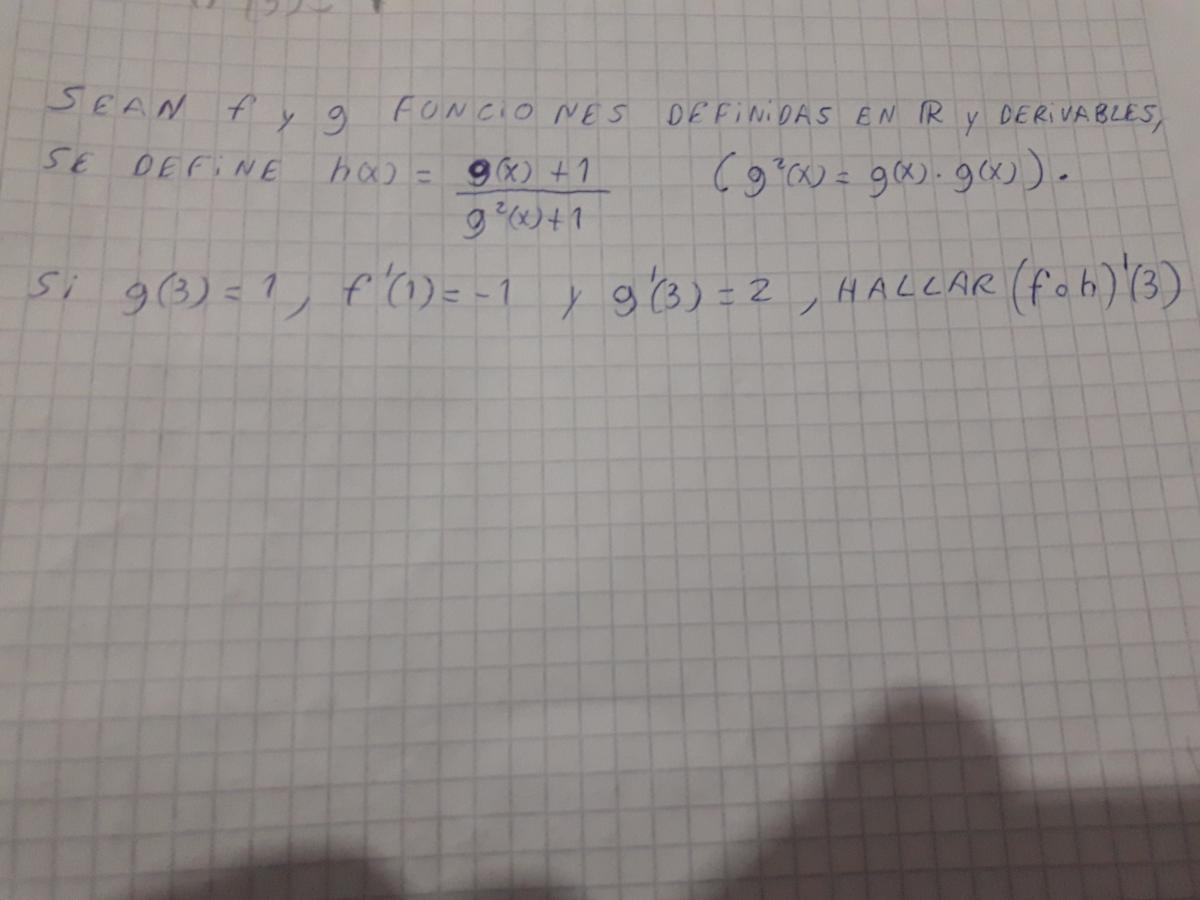 SEAN f y g FUNCIONES DEFINIDAS EN ℝ y DERIVABLES,
SE DEFINE h(x) = (g(x) + 1)/(g²(x) + 1) (g²(x) = g(x) · g(x)).
Si g(3) = 1, f'(1) = -1 y g'(3) = 2, HALLAR (f∘h)'(3)